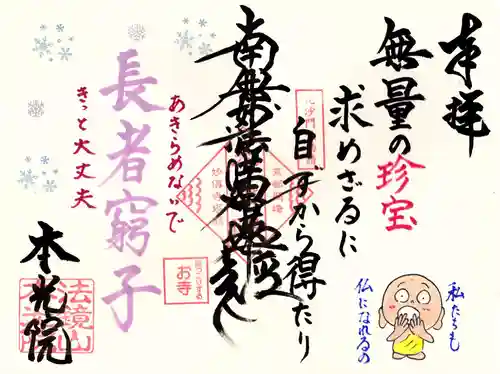 奉拝
無量の珍宝
求めざるに
自ずから得たり
南無妙法蓮華経
あきらめないで
長者窮子
きっと大丈夫
本光院
法鏡山
お寺
私たちも
仏になれるの